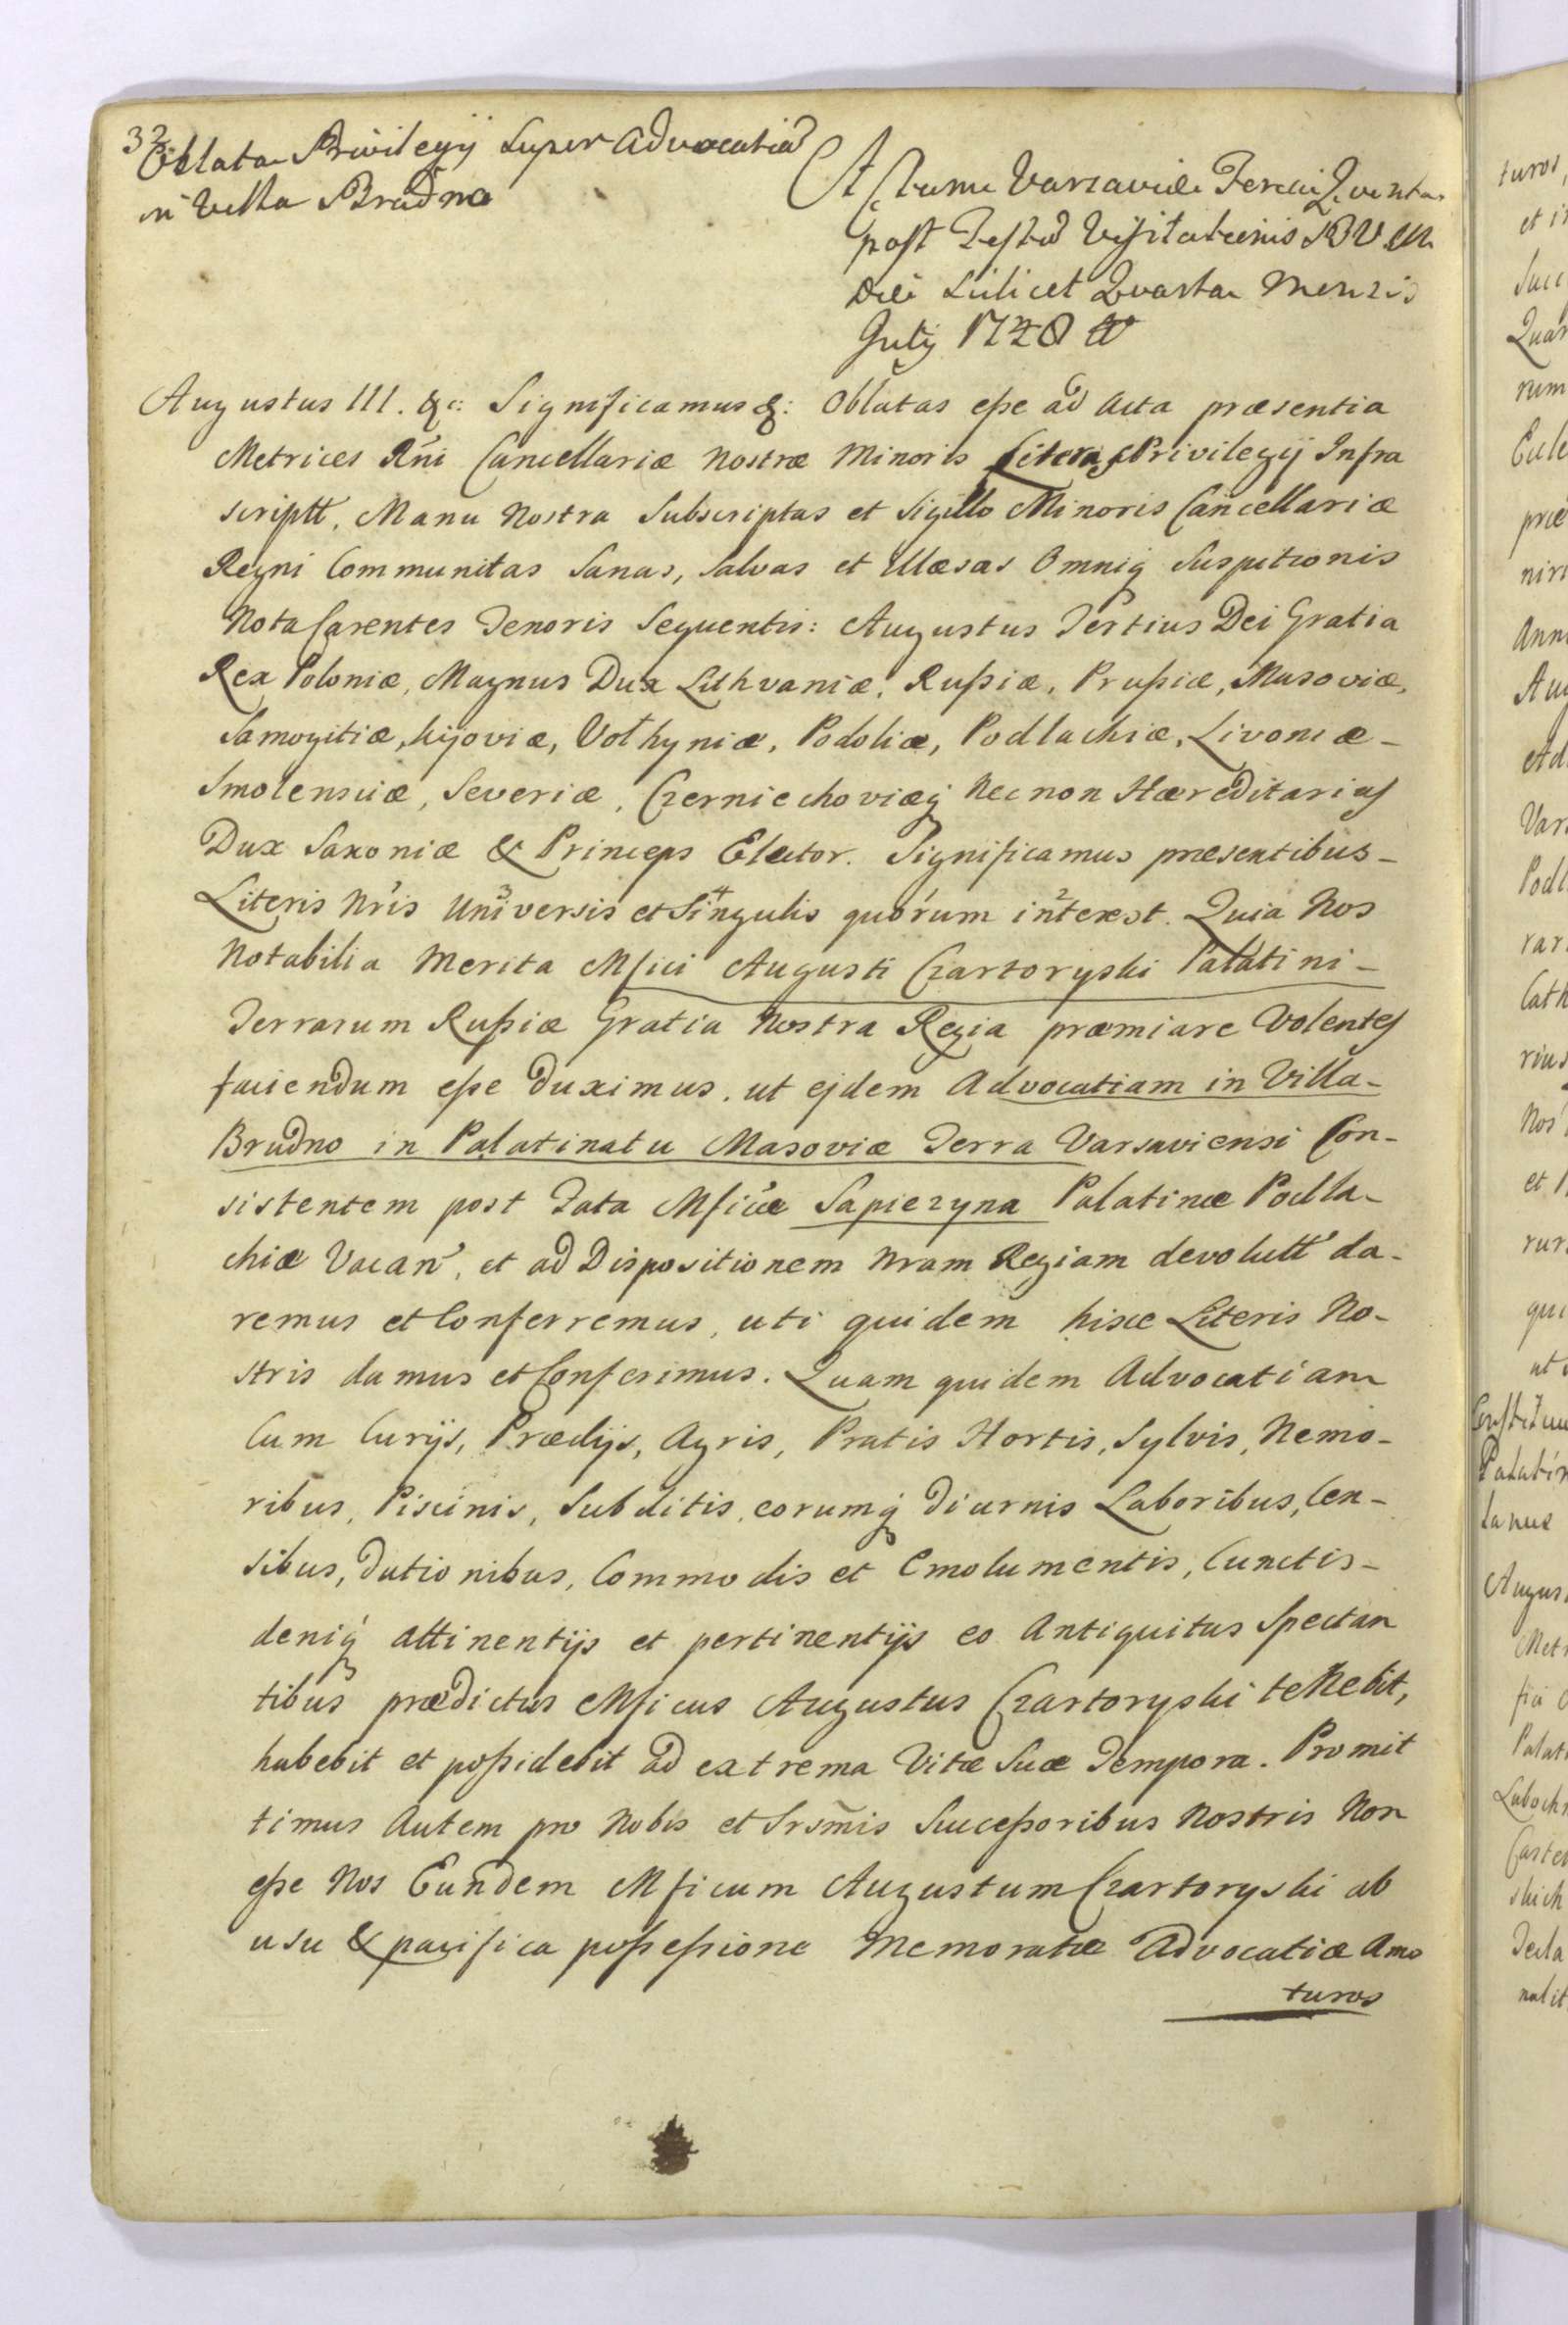 32.
Oblata Privilegij Super Advocatiã
in Villa Brudno
Actum Varsaviæ Feria Quinta
post Festũ Visitationis BVM
Die Scilicet Quarta Mensis
Julij 1748
Augustus III. &c: Significamus &: Oblatas eſse ad Acta præsentia
Metrices Rñi Cancellariæ Nostræ Minoris Literas Privilegij Infra
scriptt, Manu Nostra Subscriptas et Sigillo Minoris Cancellariæ
Regni Communitas Sanas, Salvas et Illæsas Omniq Suspitionis
Nota Carentes Tenoris Sequentis: Augustus Tertius Dei Gratia
Rex Poloniæ, Magnus Dux Lithvaniæ, Ruſsiæ, Pruſsiæ, Masoviæ,
Samogitiæ, Kijoviæ, Volhyniæ, Podoliæ, Podlachiæ, Livoniæ-
Smolensciæ, Severiæ, Czerniechoviæq Necnon Hæreditarius
Dux Saxoniæ & Princeps Elector. Significamus præsentibus-
Literis Nris Universis et Singulis quorum interest. Quia Nos
Notabilia Merita Mſici Augusti Czartoryski Palatini-
Terrarum Ruſsiæ Gratia Nostra Regia præmiare Volentes
faciendum eſse duximus, ut ejdem Advocatiam in Villa-
Brudno in Palatinatu Masoviæ Terra Varsaviensi Con-
sistentem post Fata Mſicæ Sapiezyna Palatinæ Podla-
chiæ Vacañ, et ad Dispositionem Nram Regiam devolutt da-
remus et Conferremus, uti quidem hisce Literis No-
stris damus et Conferimus. Quam quidem Advocatiam
Cum Curijs, Prædijs, Agris, Pratis Hortis, Sylvis, Nemo-
ribus, Piscinis, Subditis, eorumq diurnis Laboribus, Cen-
sibus, Dationibus, Commodis et Emolumentis, Cunctis-
deniq attinentijs et pertinentijs eo Antiquitus Spectan
tibus prædictus Mſicus Augustus Czartoryski teNebit,
habebit et poſsidebit ad extrema Vitæ Suæ Tempora. Promit
timus Autem pro Nobis et Srsm̃is Succeſsoribus Nostris Non
eſse Nos Eundem Mſicum Augustum Czartoryski ab
usu & pacifica poſseſsione Memoratæ Advocatiæ Amo
turos
turos,
et i
Succ
Quar
rum
præ
niri
Ann
Aug
Ad
Var
Podl
rar
Cath
rius
Nos
et P
rur
qui
ut
Palatin
Augus
Metr
fici
Palat
Caste
skich